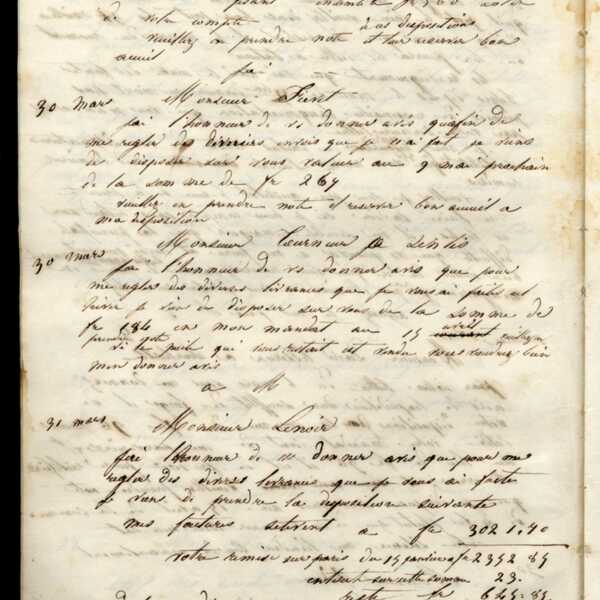 de votre compte à ces dispositions
veuillez en prendre note et leur reserver bon
accueil
30 Mars Monsieur
j'ai l'honneur de vs donner avis qu'afin de
me regler des diverses envois que je vs ai fait je viens
de disposer sur vous valeur au 9 mai prochain
de la somme de fr 264
veuillez en prendre note et reserver bon accueil a
ma disposition
30 Mars Monsieur
j'ai l'honneur de vs donner avis que pour
me regler des diverses livraisons que je vous ai faites et
je viens de disposer sur vous de la somme de
fr 184 en mon mandat au 15 avril courant
prendre note
si le qui vous restait est vendu vous voudrez bien
m'en donner avis
a M
31 mars Monsieur Lenoir
j'ai l'honneur de vs donner avis que pour me
regler des diverses livraisons que je vous ai faite
je viens de prendre la disposition suivante
mes factures a fr 3021,40
votre remise sur paris du 15 janvier fr 2352 85
interet sur cette somme 23.
reste fr 645.85